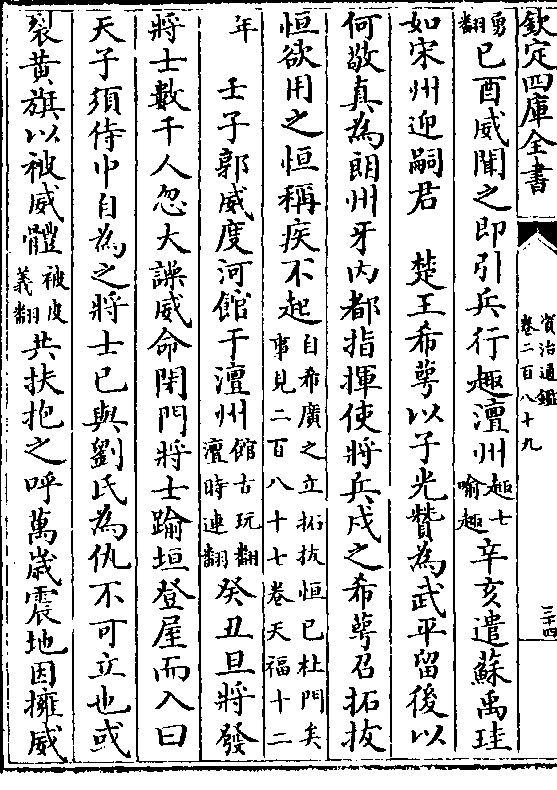 欽定四庫全書
資治通鑑
卷二百八十九
三十四
勇翻己酉威聞之即引兵行趣澶州趣七喻翻辛亥遣蘇禹珪
如宋州迎嗣君 楚王希萼以子光贊為武平留後以
何敬真為朗州牙内都指揮使將兵戍之希萼召拓抜
恒欲用之恒稱疾不起自希廣之立拓抜恒已杜門矣事見二百八十七卷天福十二
年 壬子郭威度河館于澶州館古玩翻澶時連翻癸丑旦將發
將士數千人忽大譟威命閉門將士踰垣登屋而入曰
天子須侍中自為之將士已與劉氏為仇不可立也或
裂黄旗以被威體被皮義翻共扶抱之呼萬歲震地因擁威